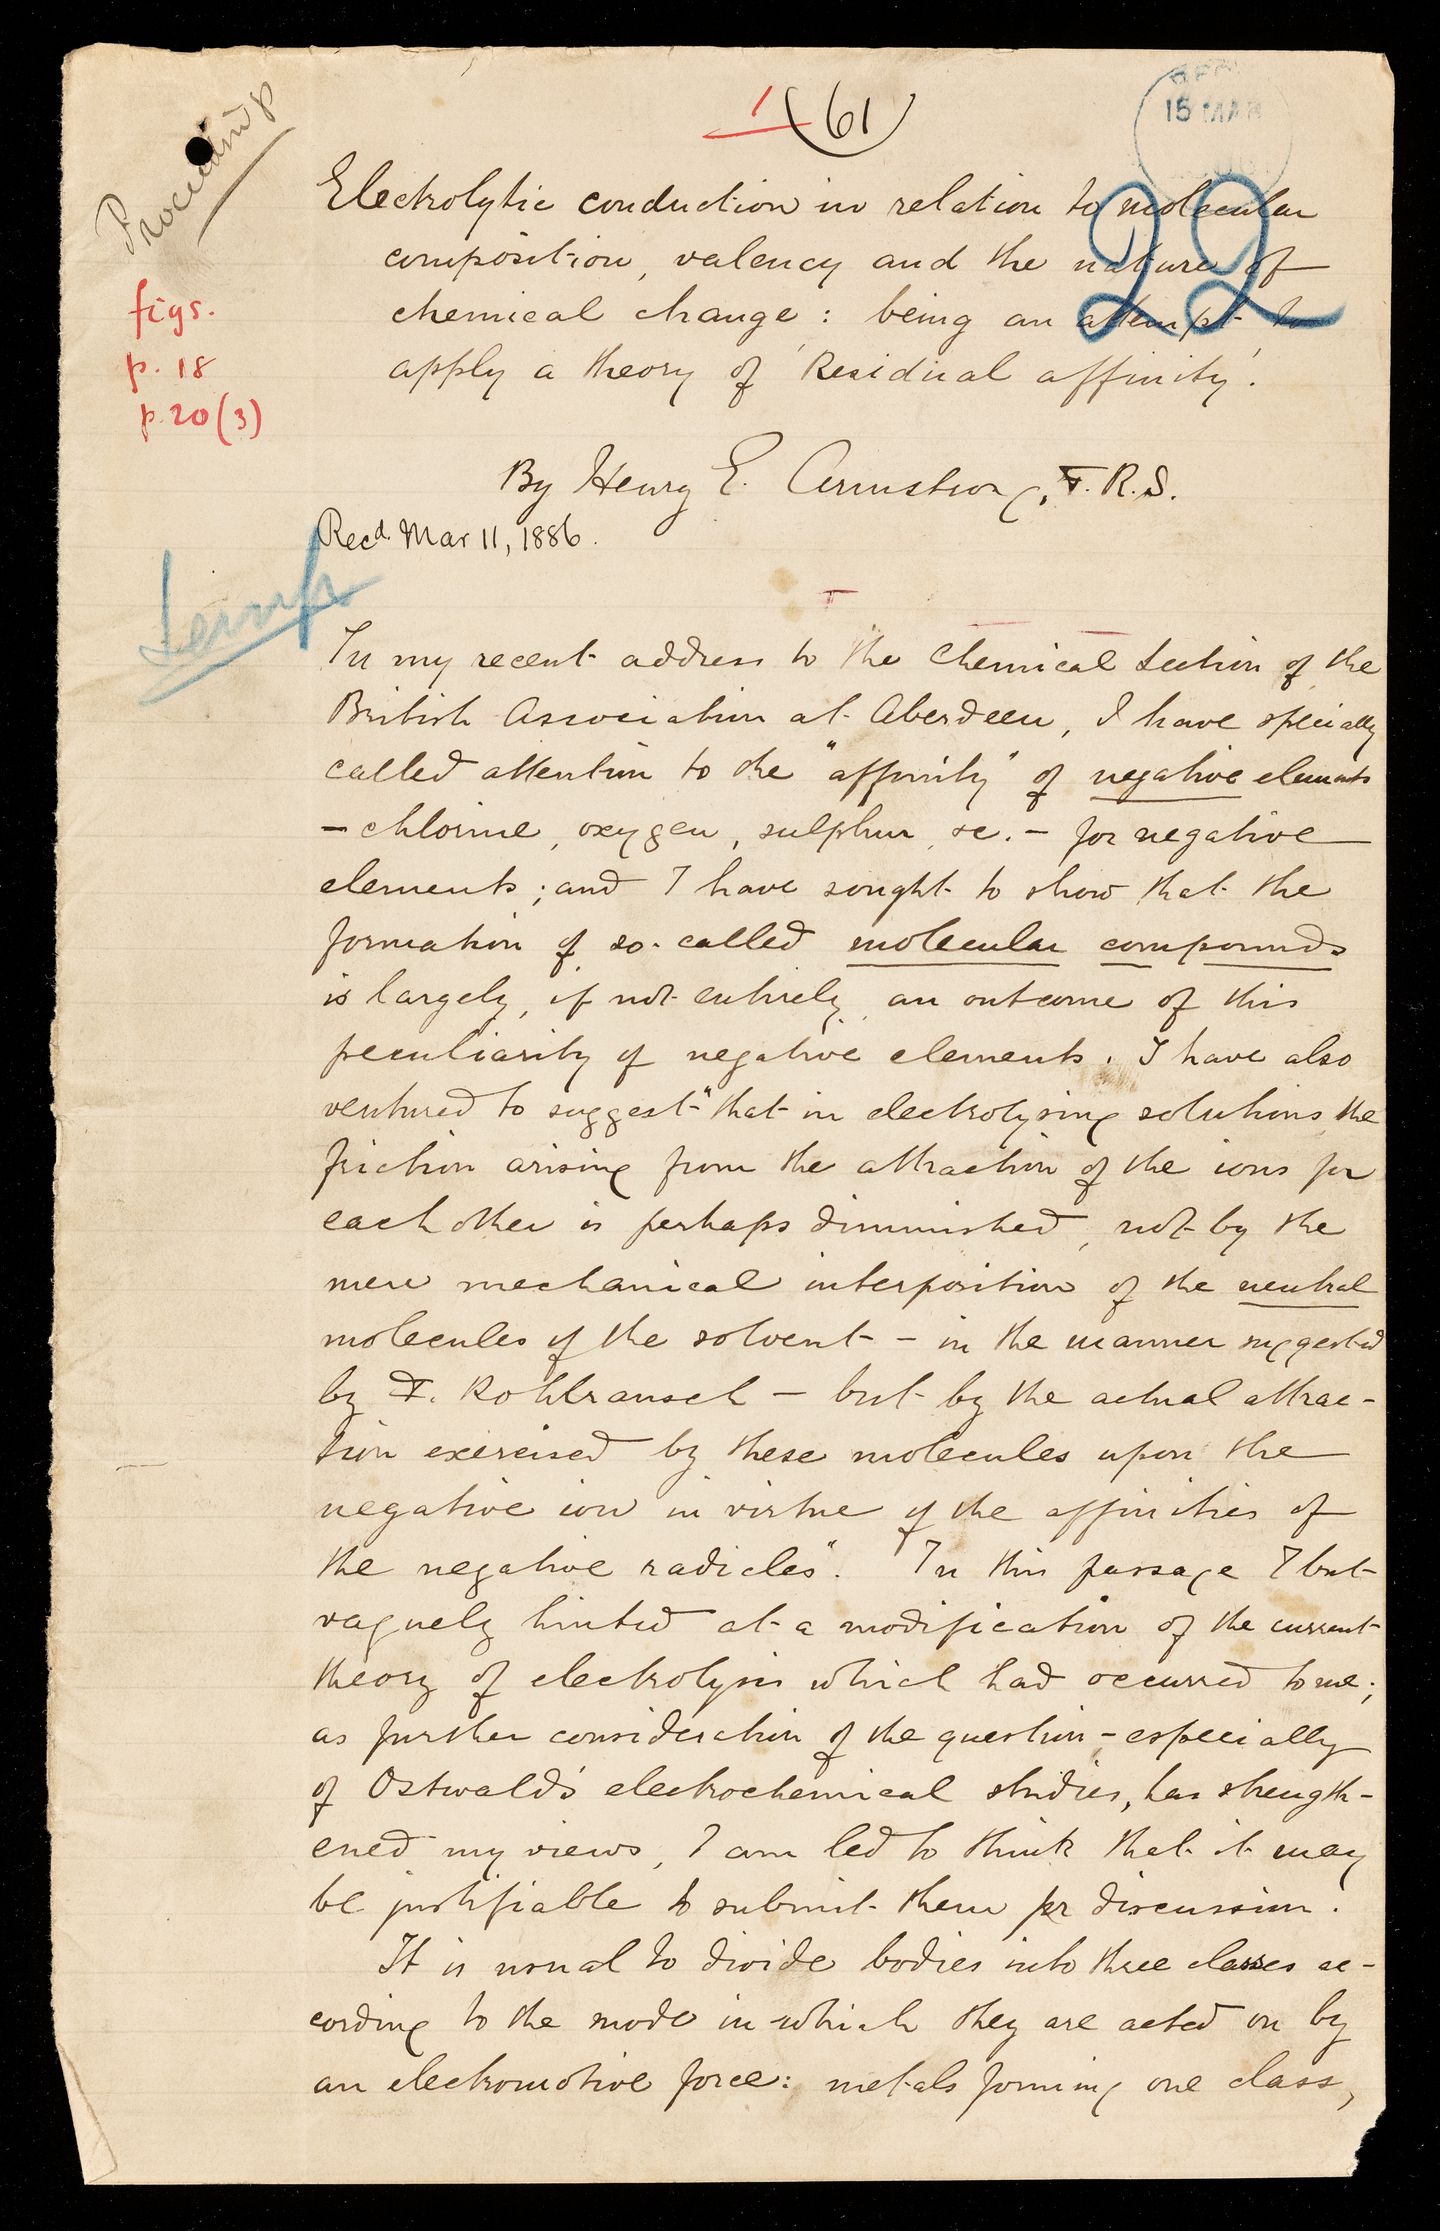 Proceedings
1
(61)
15 MAR
22
Electrolytic conduction in relation to molecular
composition, valency and the nature of
chemical change: being an attempt to
apply a theory of 'Residual affinity'.
figs.
p. 18
p. 20 (3)
By Henry E. Armstrong, F.R.S.
Recd. Mar 11, 1886.
In my recent address to the Chemical Section of the
British Association at Aberdeen, I have specially
called attention to the "affinity" of negative elements
- chlorine, oxygen, sulphur, &c. - for negative
elements; and I have sought to show that the
formation of so-called molecular compounds
is largely, if not entirely, an outcome of this
peculiarity of negative elements. I have also
ventured to suggest "that in electrolysing solutions the
friction arising from the attraction of the ions for
each other is perhaps diminished, not by the
mere mechanical interposition of the neutral
molecules of the solvent - in the manner suggested
by F. Kohlrausch - but by the actual attrac-
tion exercised by these molecules upon the
negative ion in virtue of the affinities of
the negative radicles". In this passage I but
vaguely hinted at a modification of the current
theory of electrolysis which had occurred to me;
as further consideration of the question - especially
of Ostwald's electrochemical studies, has strength-
ened my views, I am led to think that it may
be justifiable to submit them for discussion.
It is usual to divide bodies into three classes ac-
cording to the mode in which they are acted on by
an electromotive force: metals forming one class,